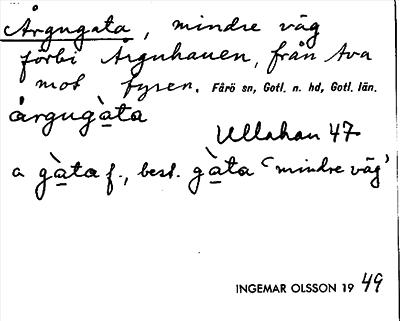 Årgugata, mindre väg
förbi Årguhauen, från Ava
mot fyren. Fårö sn, Gotl. n. hd, Gotl. län.
årgugàta
Ullahau 47
a gàta f., best. gàta ‘mindre väg’
INGEMAR OLSSON 19 49